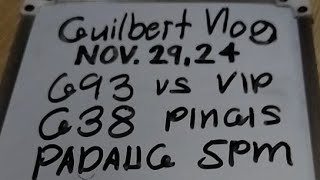 Guilbert Vlog
NOV. 29.24
G93 vs VIP
G38 PINGIS
PADAUG 5PM